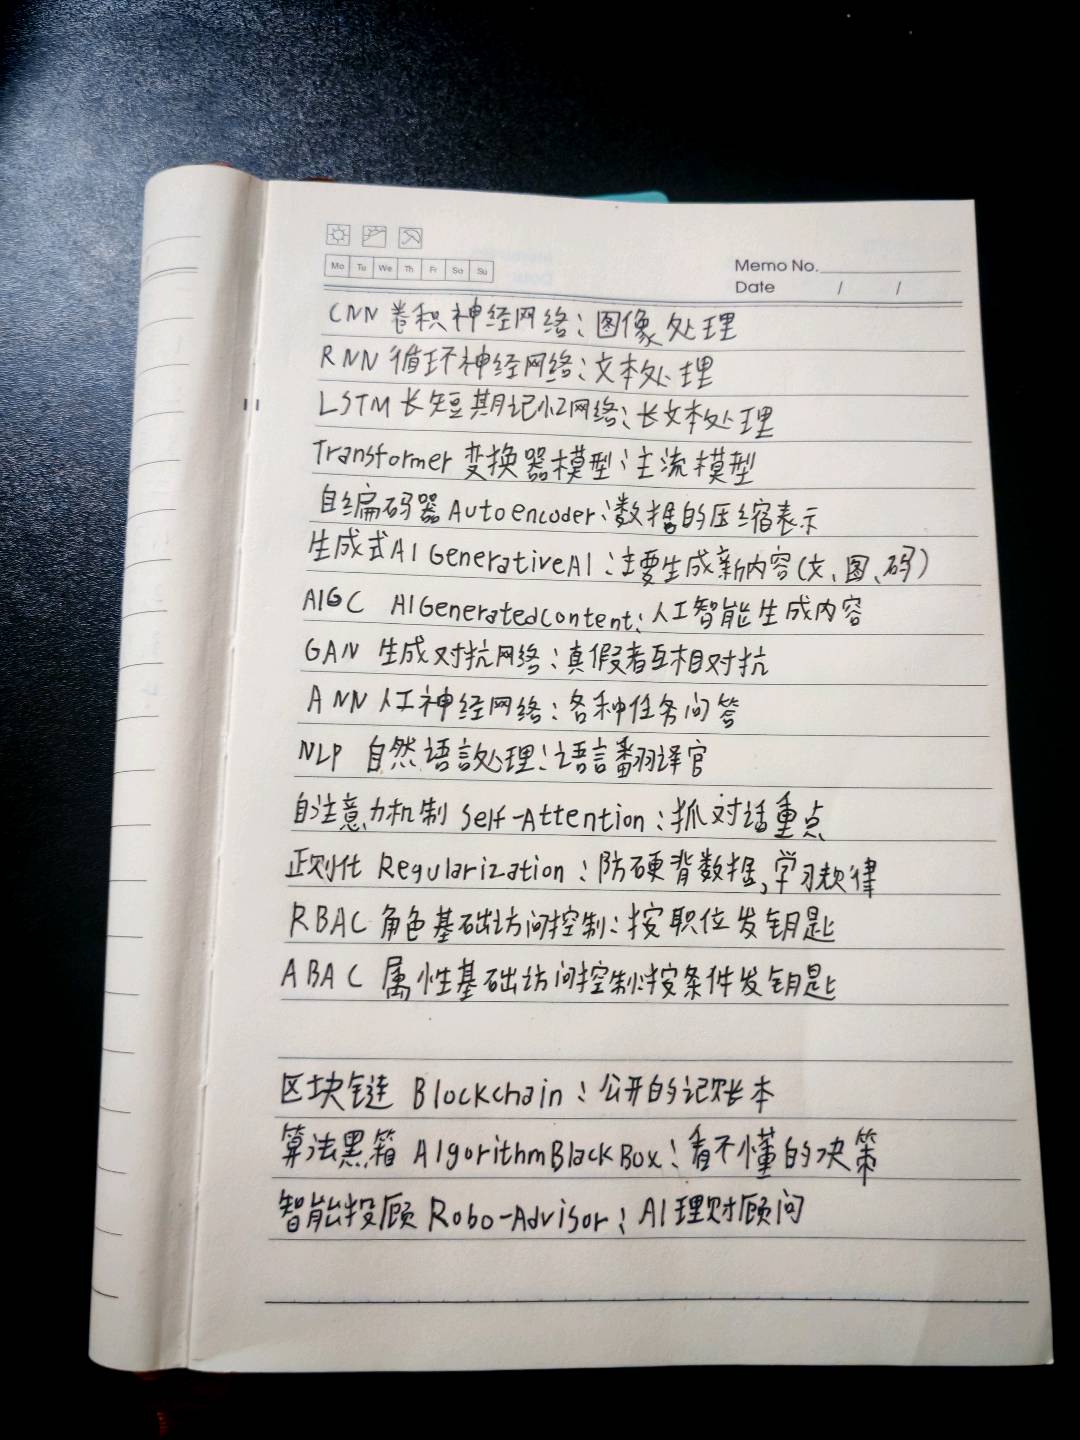 Mo Tu We Th Fr Sa Su
Memo No.
Date / /
CNN 卷积神经网络：图像处理
RNN 循环神经网络：文本处理
LSTM 长短期记忆网络：长文本处理
Transformer 变换器模型：主流模型
自编码器 Autoencoder：数据的压缩表示
生成式AI GenerativeAI：主要生成新内容（文、图、码）
AIGC AIGeneratedContent：人工智能生成内容
GAN 生成对抗网络：真假者互相对抗
ANN 人工神经网络：各种任务问答
NLP 自然语言处理：语言翻译官
自注意力机制 Self-Attention：抓对话重点
正则化 Regularization：防硬背数据，学习规律
RBAC 角色基础访问控制：按职位发钥匙
ABAC 属性基础访问控制：按条件发钥匙
区块链 Blockchain：公开的记账本
算法黑箱 AlgorithmBlackBox：看不懂的决策
智能投顾 Robo-Advisor：AI理财顾问